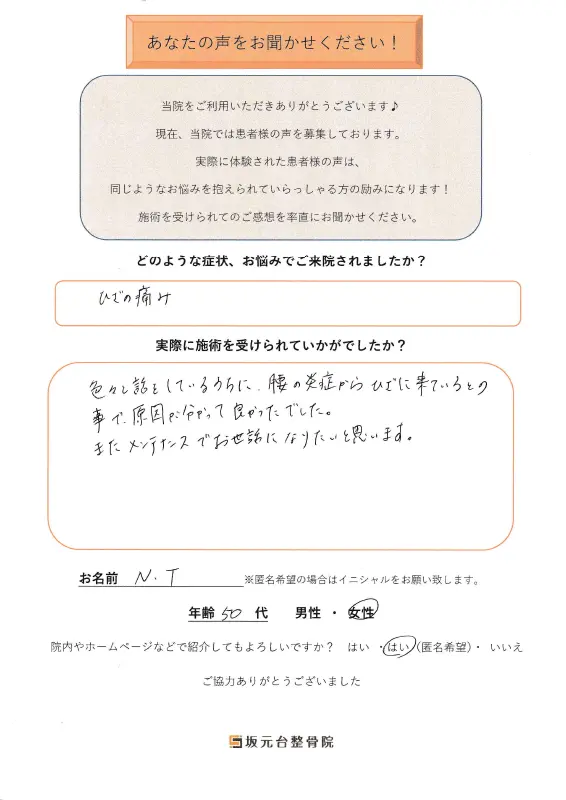 あなたの声をお聞かせください！
当院をご利用いただきありがとうございます♪
現在、当院では患者様の声を募集しております。
実際に体験された患者様の声は、
同じようなお悩みを抱えられていらっしゃる方の励みになります！
施術を受けられてのご感想を率直にお聞かせください。
どのような症状、お悩みでご来院されましたか？
ひざの痛み
実際に施術を受けられていかがでしたか？
色々と話をしているうちに、腰の炎症からひざに来ているとの
事で、原因が分かって良かったでした。
またメンテナンスでお世話になりたいと思います。
お名前 N.T ※匿名希望の場合はイニシャルをお願い致します。
年齢 50 代 男性 ・ 女性
院内やホームページなどで紹介してもよろしいですか？ はい ・はい（匿名希望）・ いいえ
ご協力ありがとうございました
坂元台整骨院